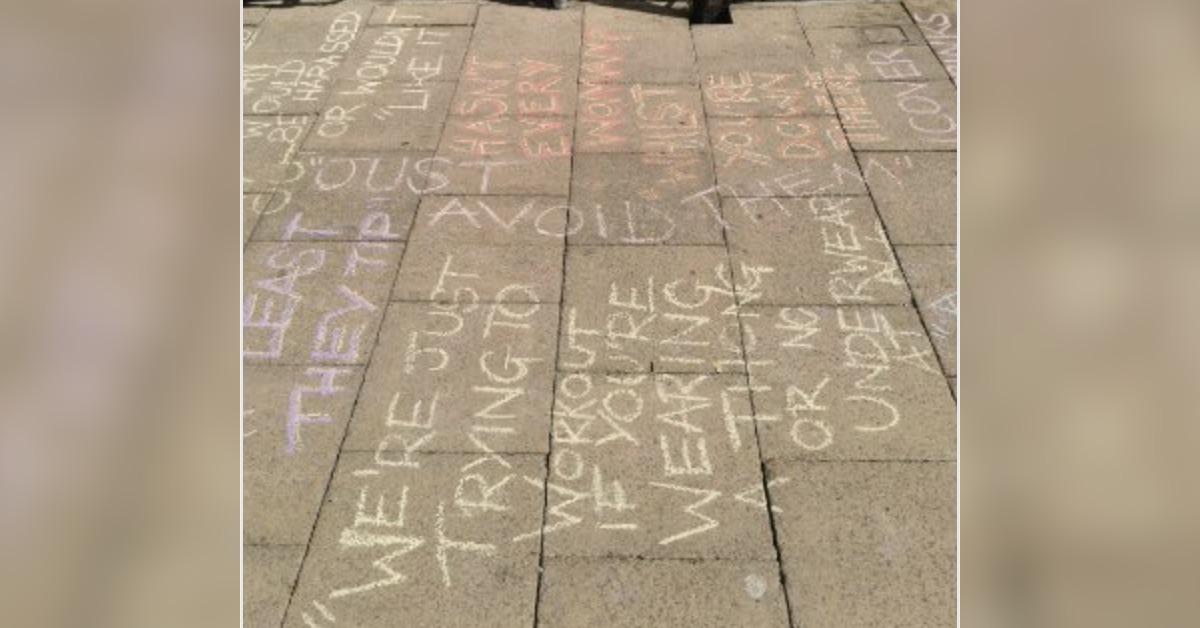 WOULD
BE HARASSED
OR WOULDN'T
"LIKE IT
HASN'T
EVERY
"WHILST
YOU'RE
DOWN
THERE"
COVER
"JUST
AVOID THEM"
LEAST
THEY TIP"
"WE'RE JUST
TRYING TO
WORKOUT
IF YOU'RE
WEARING
A THONG
OR NO
UNDERWEAR
AT ALL